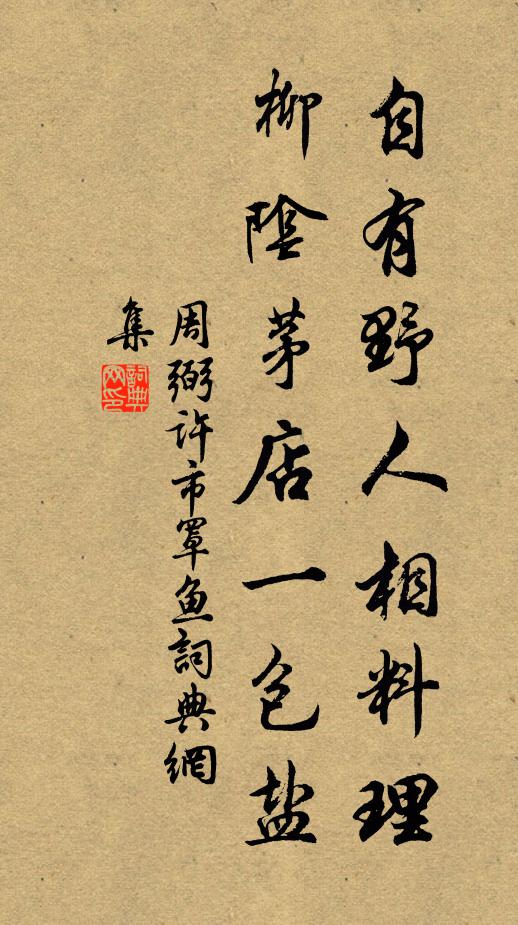 自有野人相料理
柳陰茅店一包盐
周弼许市罩鱼詞典網
集
詞典
网印